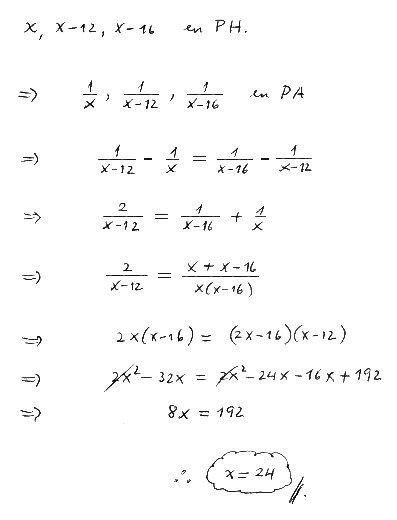 x, x-12, x-16 en PH.
⇒ 1/x, 1/(x-12), 1/(x-16) en PA
⇒ 1/(x-12) - 1/x = 1/(x-16) - 1/(x-12)
⇒ 2/(x-12) = 1/(x-16) + 1/x
⇒ 2/(x-12) = (x+x-16)/(x(x-16))
⇒ 2x(x-16) = (2x-16)(x-12)
⇒ 2x² - 32x = 2x² - 24x - 16x + 192
⇒ 8x = 192
∴ x = 24 //.